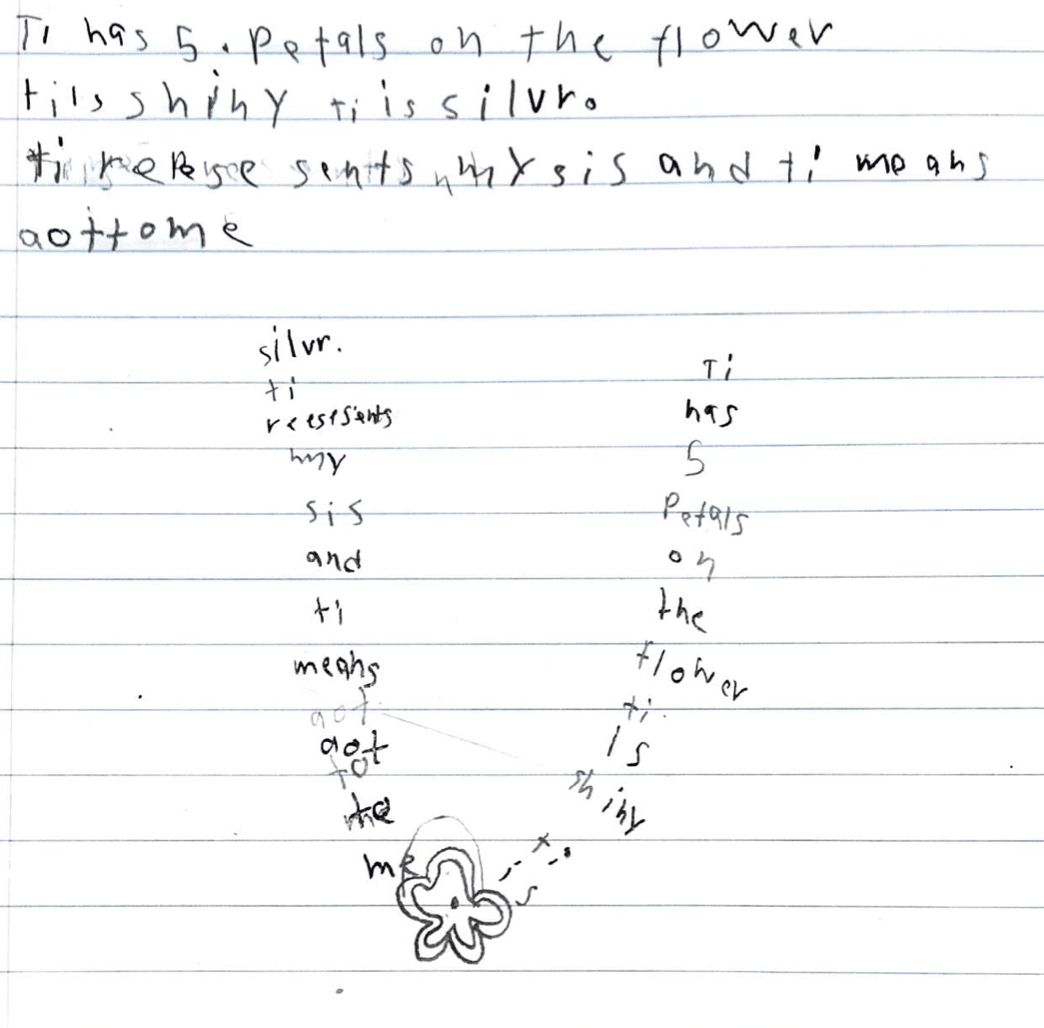 Ti has 5. Petals on the flower
ti is shiny ti is silvr.
ti sents my sis and ti means
aottome
silvr.
ti
my
sis
and
ti
means
aot
aot
to
me
Ti
has
5
Petals
on
the
flower
ti
is
shiny
ti
is